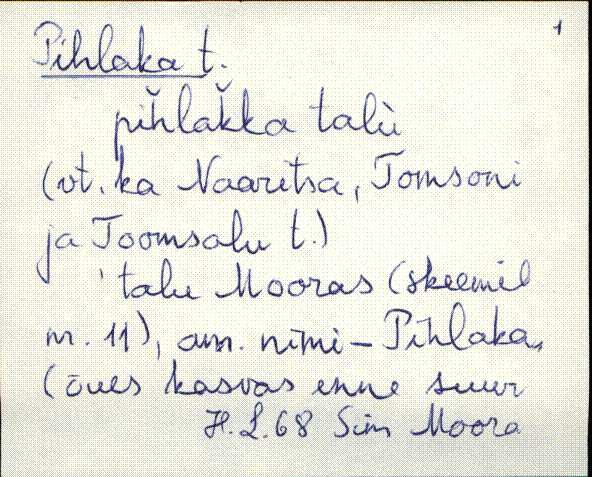 1
Pihlaka t.
pih̆lak̆ka talù
(vt. ka Naaritsa, Tomsoni
ja Toomsalu t.)
' talu Mooras (skeemil
nr. 11), am. nimi – Pihlaka,
(õues kasvas enne suur
H. L. 68 Sim Moora